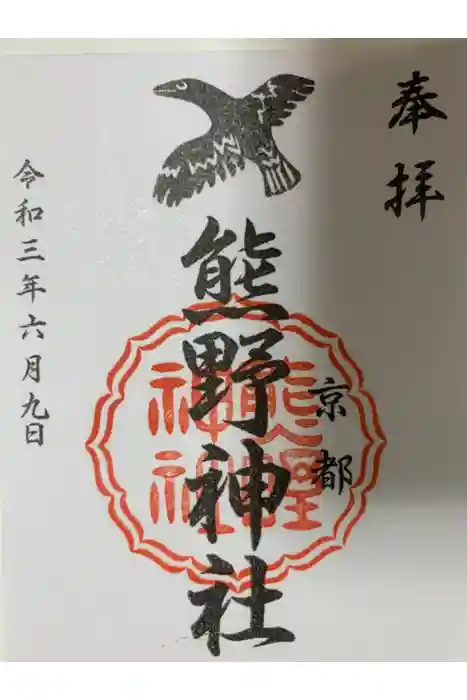 奉拝
京都
熊野神社
熊野
神社
令和三年六月九日